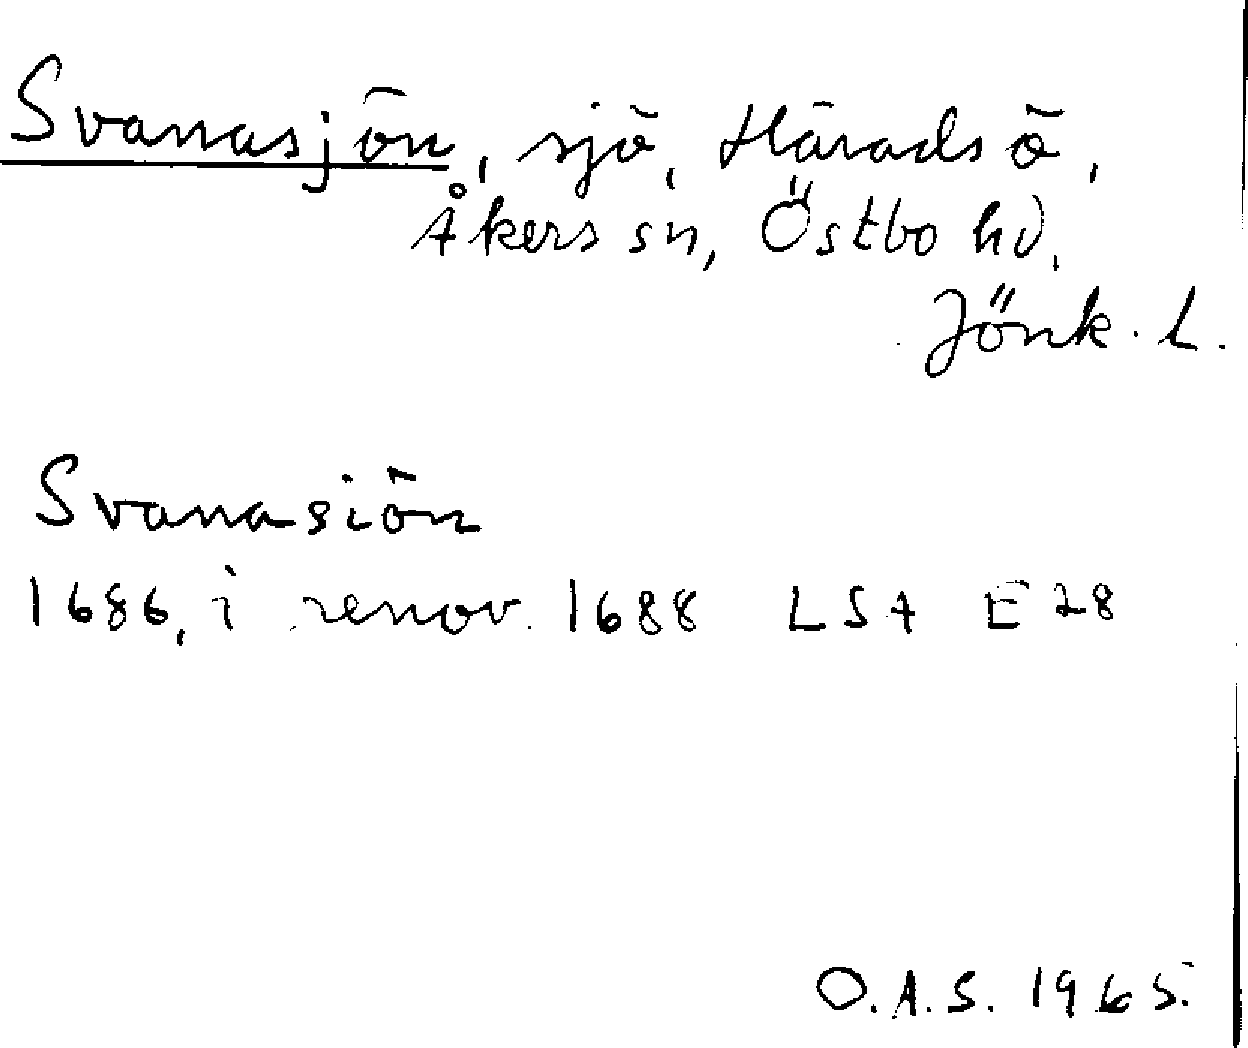 Svanasjön, sjö, Häradsö,
Åkers sn, Östbo hd,
Jönk. L.
Svanasiön
1686, i renov. 1688 LSt E28
O.A.S. 1965.